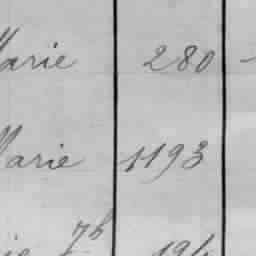 Marie 280
Marie 1193
7b
194